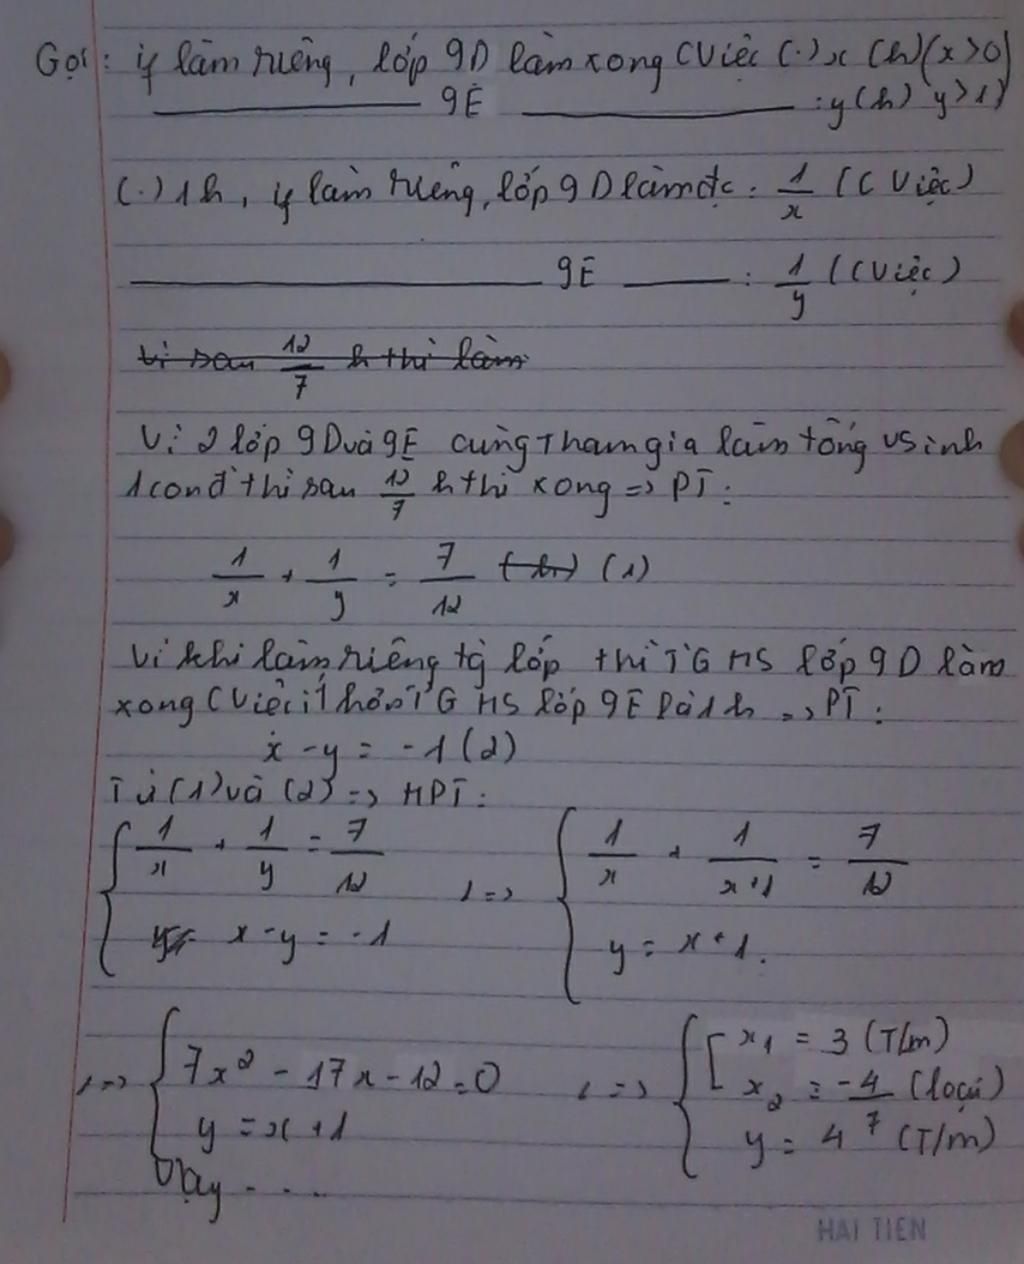 Gọi: ɨ làm riêng, lớp 9D làm xong CViệc (.) x (h) (x > 0)
9E : y (h) y > 1)
(.) 1h, ɨ làm riêng, lớp 9D làm đc : 1/x (CViệc)
9E : 1/y (CViệc)
Vì sau 12/7 h thì làm
Vì 2 lớp 9D và 9E cùng Tham gia làm tổng vsinh
1 con đ thì sau 12/7 h thì xong => PT :
1/x + 1/y = 7/12 (h) (1)
Vì khi làm riêng lớp thì TG HS lớp 9D làm
xong CViệc ít hơn TG HS lớp 9E là 1h => PT :
x - y = -1 (2)
Từ (1) và (2) => HPT :
{ 1/x + 1/y = 7/12 <=> { 1/x + 1/x+1 = 7/12
y= x - y = -1 y = x + 1.
<=> { 7x² - 17x - 12 = 0 <=> { [ x₁ = 3 (T/m)
x₂ = -4/7 (loại)
y = x + 1 y = 4 (T/m)
Vậy ....
HẢI TIẾN